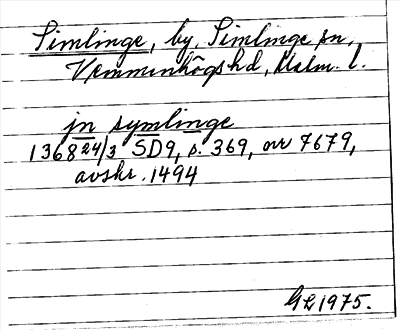 Simlinge, by, Simlinge sn,
Vemmenhögs hd, Malm. l.
jn symlinge
1368 24/3 SD9, s. 369, nr 7679,
avskr. 1494
GL 1975.